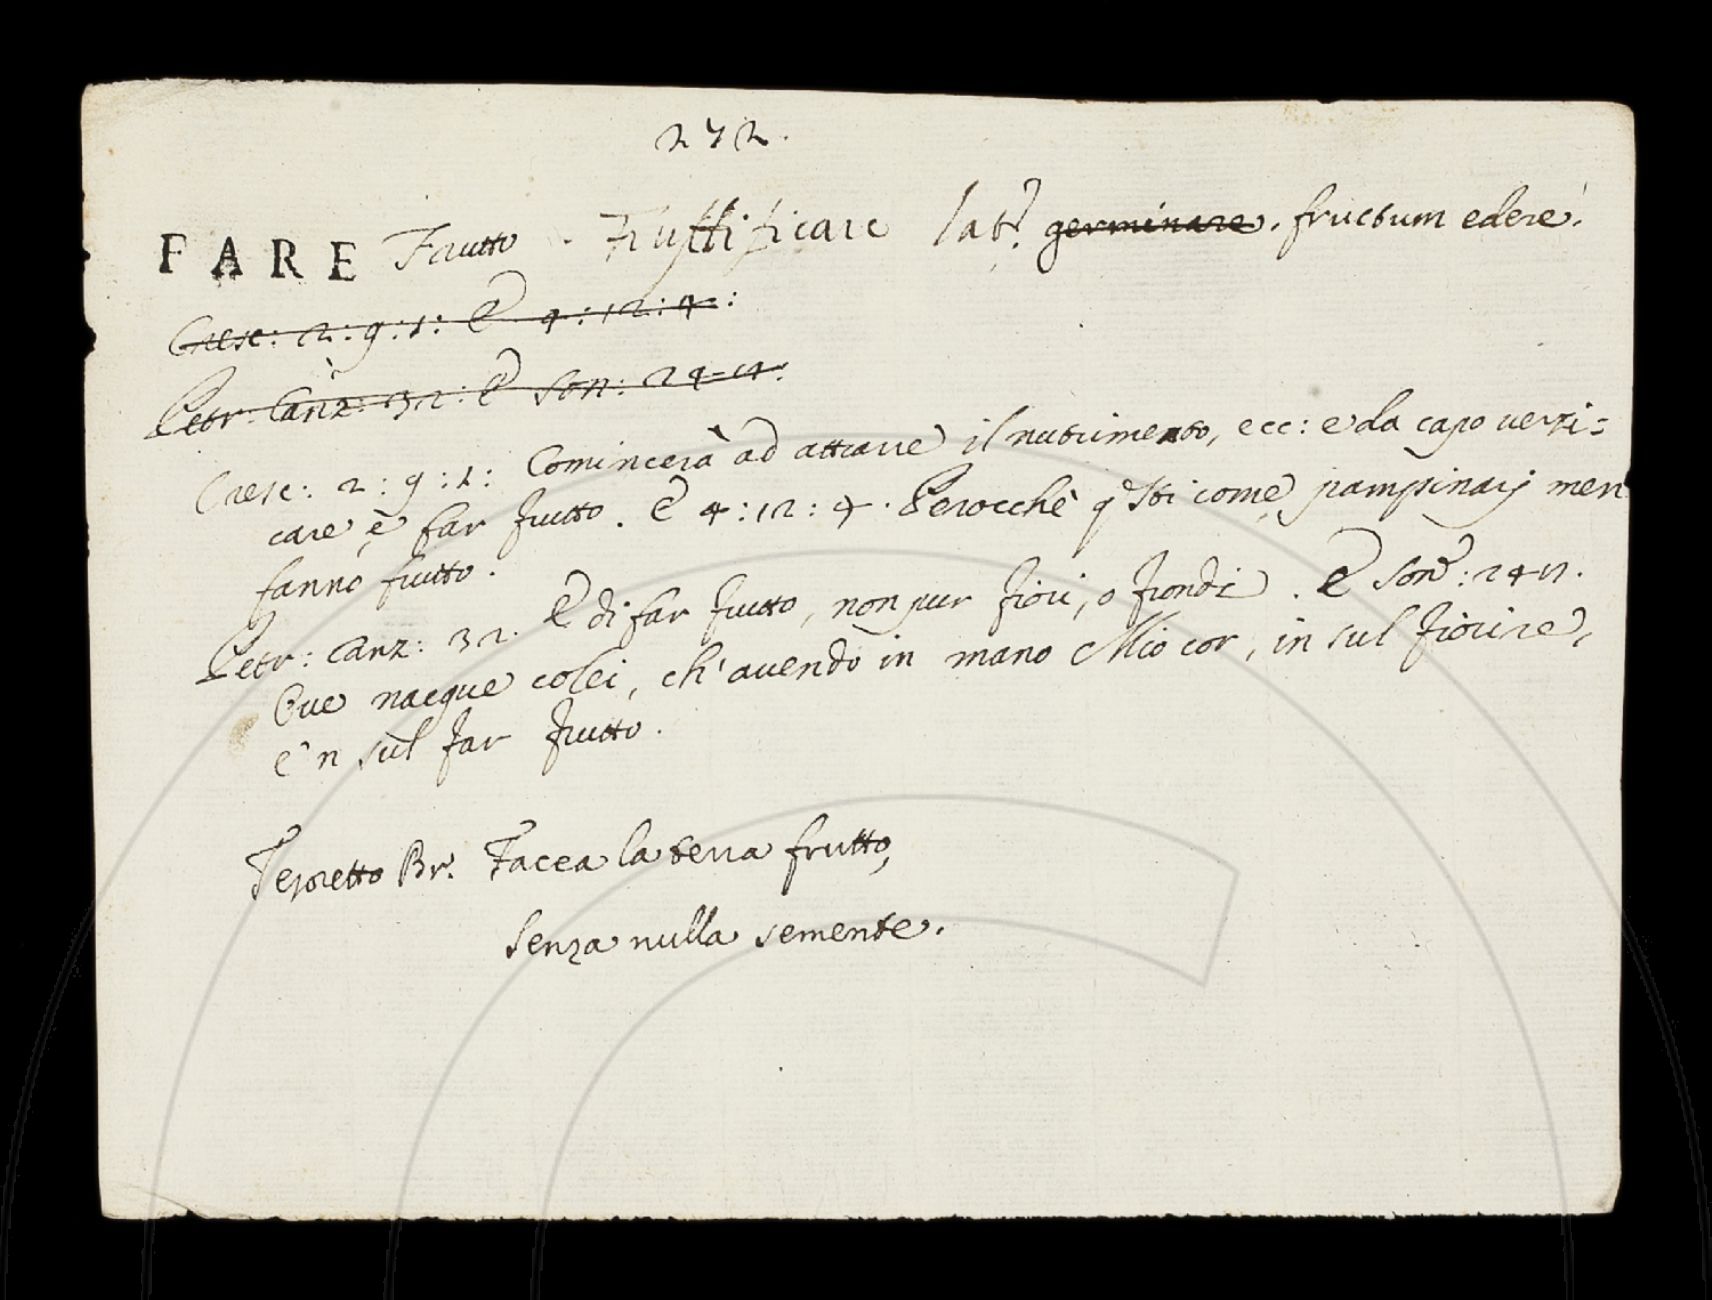 272.
FARE Frutto. Fruttificare lat. germinare. fructum edere.
Cresc: 2: 9: 1: E 4: 12: 4:
Petr: Canz: 32: E Son:
Cresc: 2: 9: 1: Comincerà ad attrarre il nutrimento, ecc: e da capo verzi=
care, e far frutto. E 4: 12: 4. Perocchè qsti come pampinarj men
fanno frutto.
Petr: Canz: 32. E di far frutto, non pur fiori, o frondi. E Son:
Ove nacque colei, ch'avendo in mano Mio cor, in sul fiorire,
e'n sul far frutto.
Tesoretto Br. Facea la terra frutto,
Senza nulla semente.